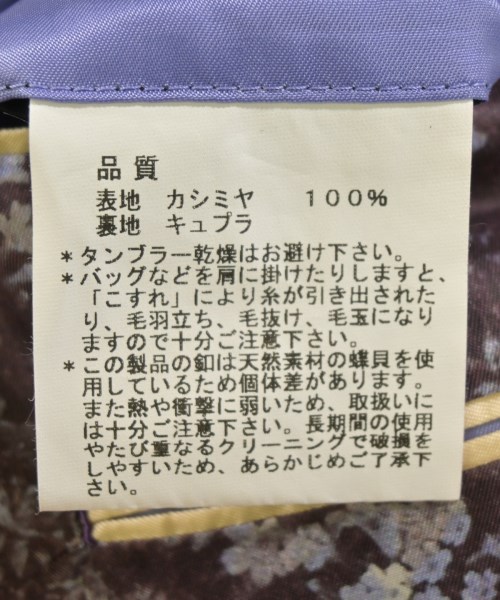 品 質
表地 カシミヤ 100%
裏地 キュプラ
*タンブラー乾燥はお避け下さい。
*バッグなどを肩に掛けたりしますと、
「こすれ」により糸が引き出された
り、毛羽立ち、毛抜け、毛玉になり
ますので十分ご注意下さい。
*この製品の釦は天然素材の蝶貝を使
用しているため個体差があります。
また熱や衝撃に弱いため、取扱いに
は十分ご注意下さい。長期間の使用
やたび重なるクリーニングで破損を
しやすいため、あらかじめご了承下
さい。